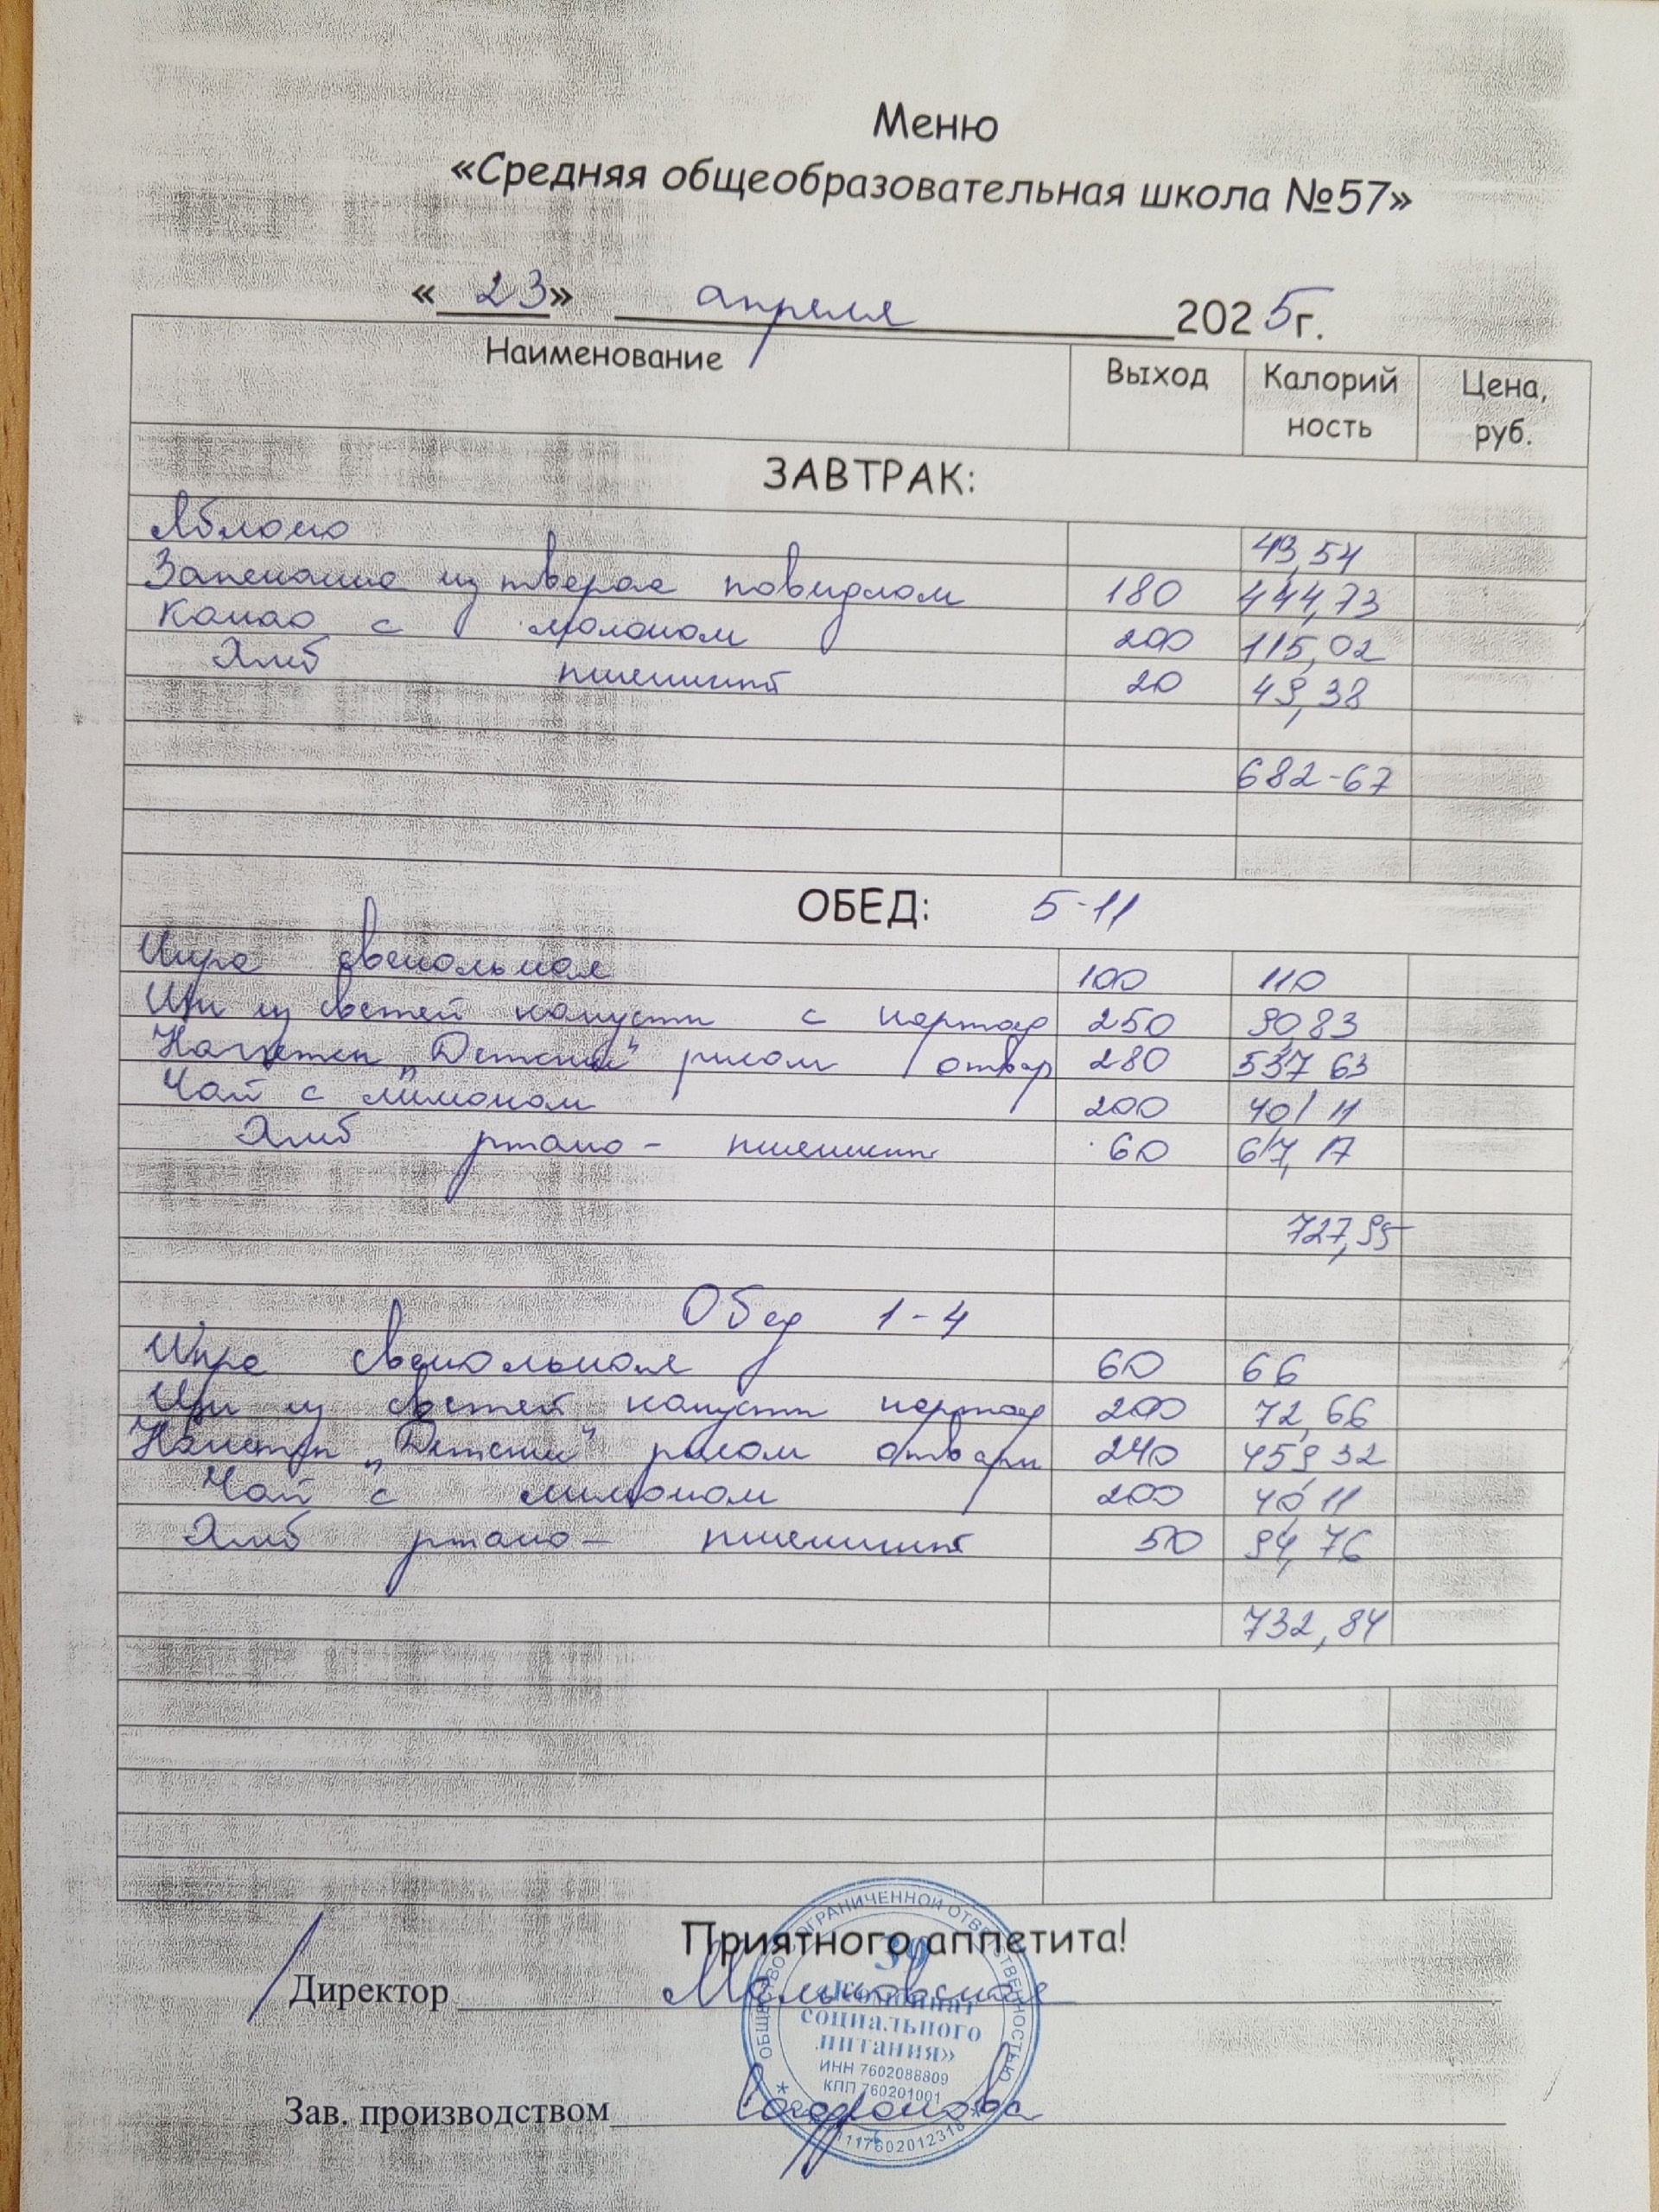 Меню
«Средняя общеобразовательная школа №57»
« 23 » апреля 2025г.
Наименование Выход Калорий Цена,
ность руб.
ЗАВТРАК:
Яблоко 43,54
Запеканка из творога повидлом 180 444,73
Какао с молоком 200 115,02
Хлеб пшеничный 20 49,38
682-67
ОБЕД: 5-11
Икра свекольная 100 110
Щи из свежей капусты с картоф 250 90,83
Наггетсы „Детские" рисом отвар 280 537 63
Чай с лимоном 200 40, 11
Хлеб ржано - пшеничн 60 67, 17
727,95
Обед 1-4
Икра свекольная 60 66
Щи из свежей капусты картоф 200 72,66
„Детские" рисом отварн 240 459 32
Чай с лимоном 200 40,11
Хлеб ржано - пшеничный 50 94,76
732,84
Приятного аппетита!
Директор
Зав. производством
ОБЩЕСТВО С ОГРАНИЧЕННОЙ ОТВЕТСТВЕННОСТЬЮ
«Комбинат
социального
питания»
ИНН 7602088809
КПП 760201001